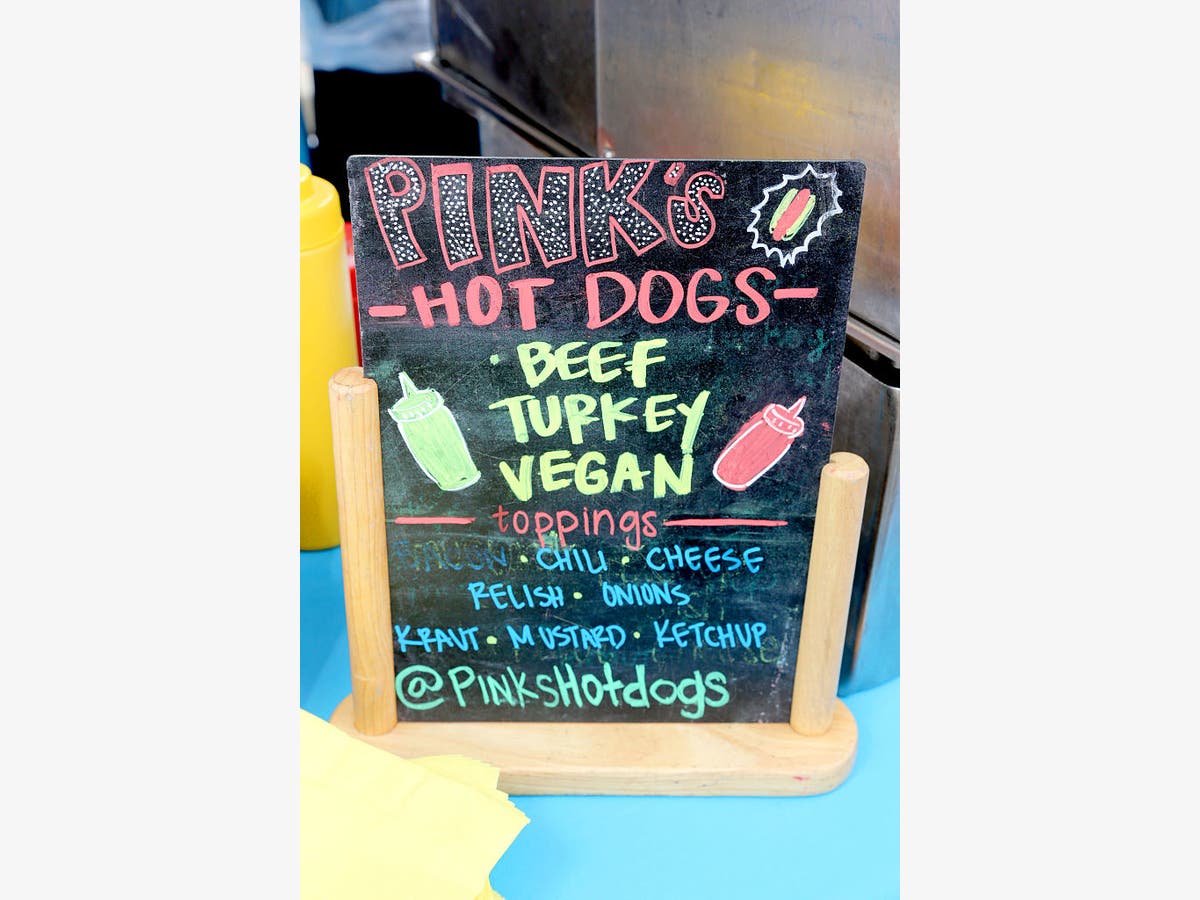 PINK's
-HOT DOGS-
· BEEF
TURKEY
VEGAN
toppings
BACON · CHILI · CHEESE
RELISH · ONIONS
KRAUT · MUSTARD · KETCHUP
@PINKsHotdogs